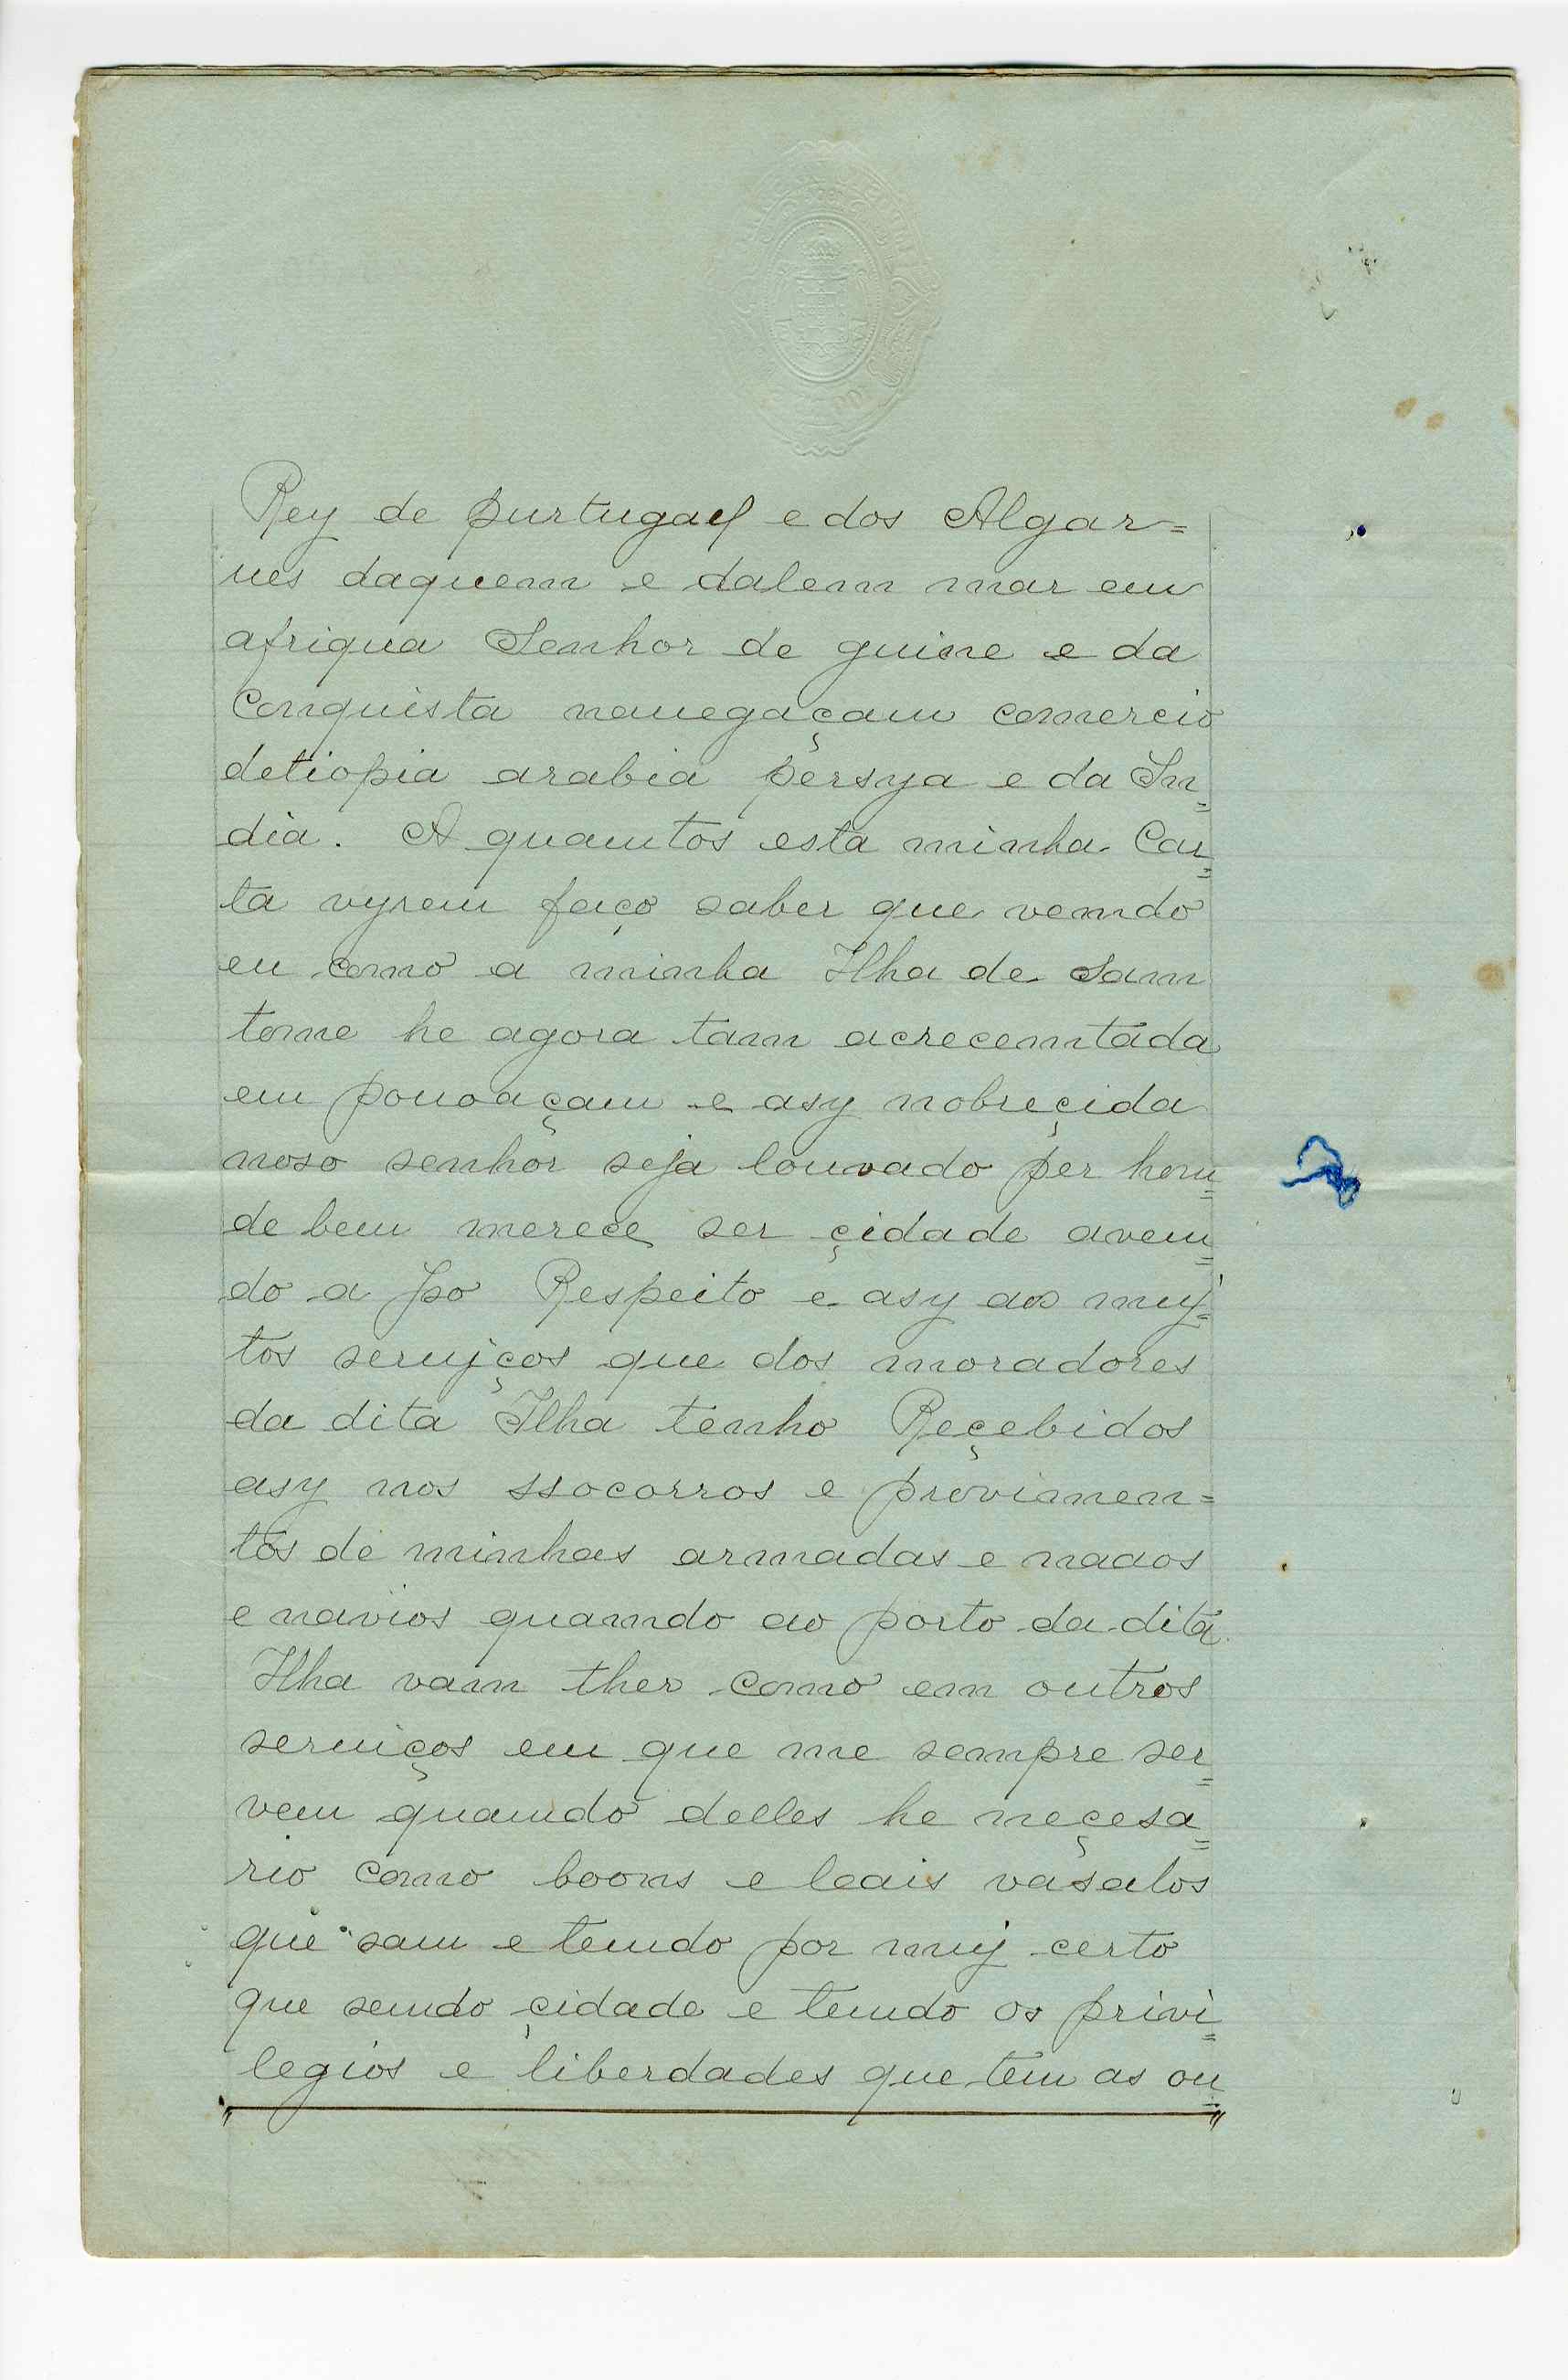 Rey de purtugall e dos Algar=
ues daquem e dalem mar em
afriqua Senhor de guine e da
Conquista nauegaçam comercio
detiopia arabia persya e da In=
dia. A quamtos esta minha Car=
ta vyrem faço saber que vemdo
eu como a minha Ilha de Sam
tome he agora tam acrecemtada
em pouoaçam e asy nobreçida
noso senhor seja louvado per hom=
de bem merece ser çidade avem=
do a Jso Respeito e asy aos muy=
tos serujços que dos moradores
da dita Ilha tenho Reçebidos
asy nos ssocorros e provimen=
tos de minhas armadas e naaos
e navios quamdo ao porto da dita
Ilha vam ther como em outros
seruiços em que me sempre ser=
vem quamdo delles he neçesa=
rio como boons e leais vasalos
que sam e temdo por muj certo
que semdo çidade e temdo os privi=
legios e liberdades que tem as ou=